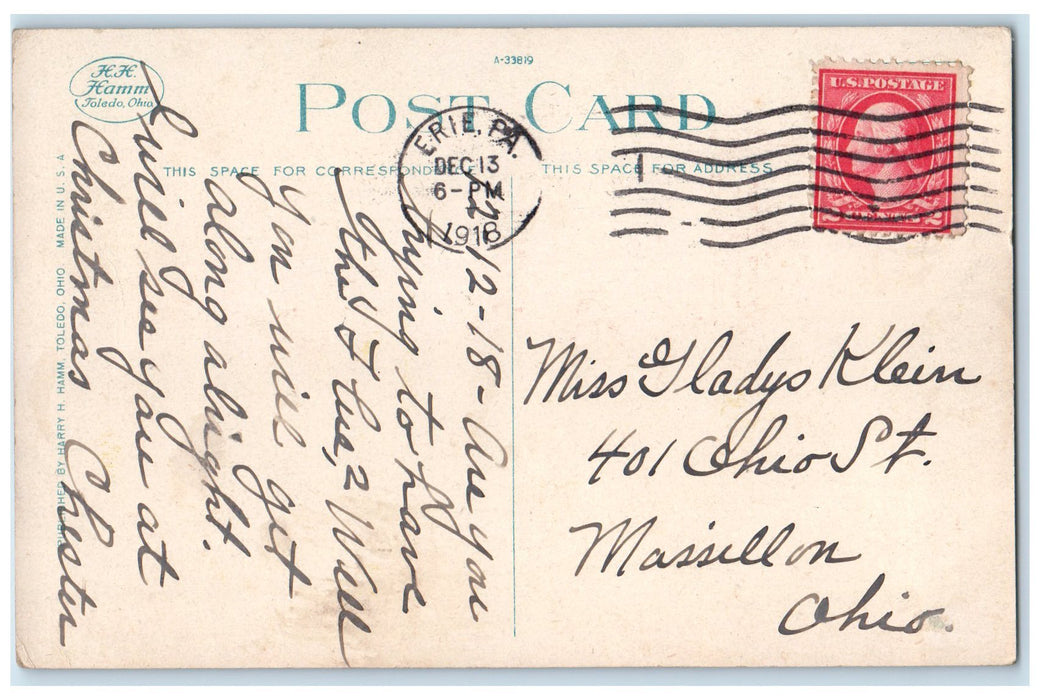 H.H.
Hamm
Toledo, Ohio
A-33819
POST CARD
THIS SPACE FOR CORRESPONDENCE
THIS SPACE FOR ADDRESS
MADE IN U.S.A
PUBLISHED BY HARRY H. HAMM, TOLEDO, OHIO
ERIE, PA.
DEC 13
6-PM
1918
1
U.S. POSTAGE
2 2
12-12-18- Are you
trying to have
the "Flue," Well
you will get
along alright.
I will see you at
Christmas Chester
Miss Gladys Klein
401 Ohio St.
Massillon
Ohio.